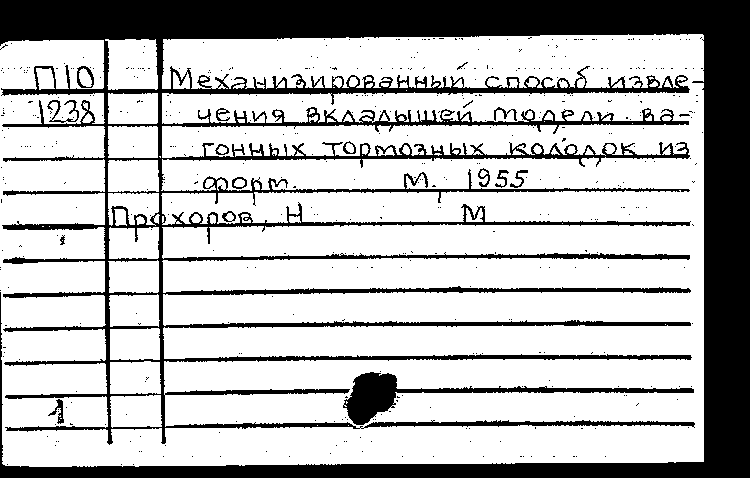 П10 Механизированный способ извле-
1238 чения вкладышей модели ва-
гонных тормозных колодок из
форм. М, 1955
Прохоров, Н М
1